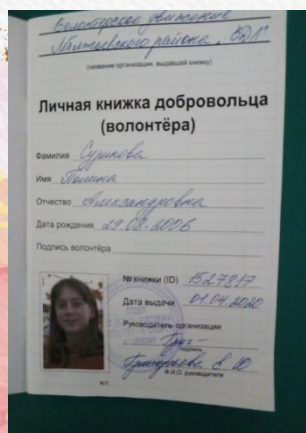 Волонтерское движение
района "ВДЛ"
(название организации, выдавшей книжку)
Личная книжка добровольца
(волонтёра)
Фамилия Сурикова
Имя Полина
Отчество Александровна
Дата рождения 29.08.2006
Подпись волонтёра
№ книжки (ID) 1527817
Дата выдачи 01.04.2020
Руководитель организации
подпись
Григорьева Е. Ю
Ф.И.О. руководителя
М.П.